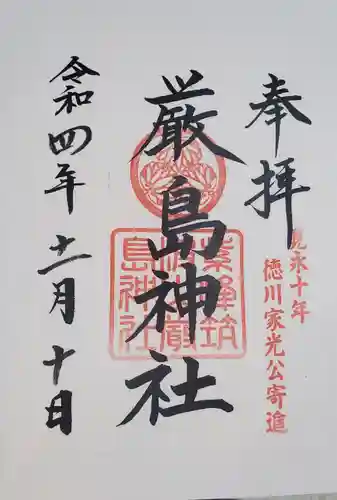 奉拝
寛永十年
徳川家光公寄進
厳島神社
紫峰筑
令和四年十二月十日